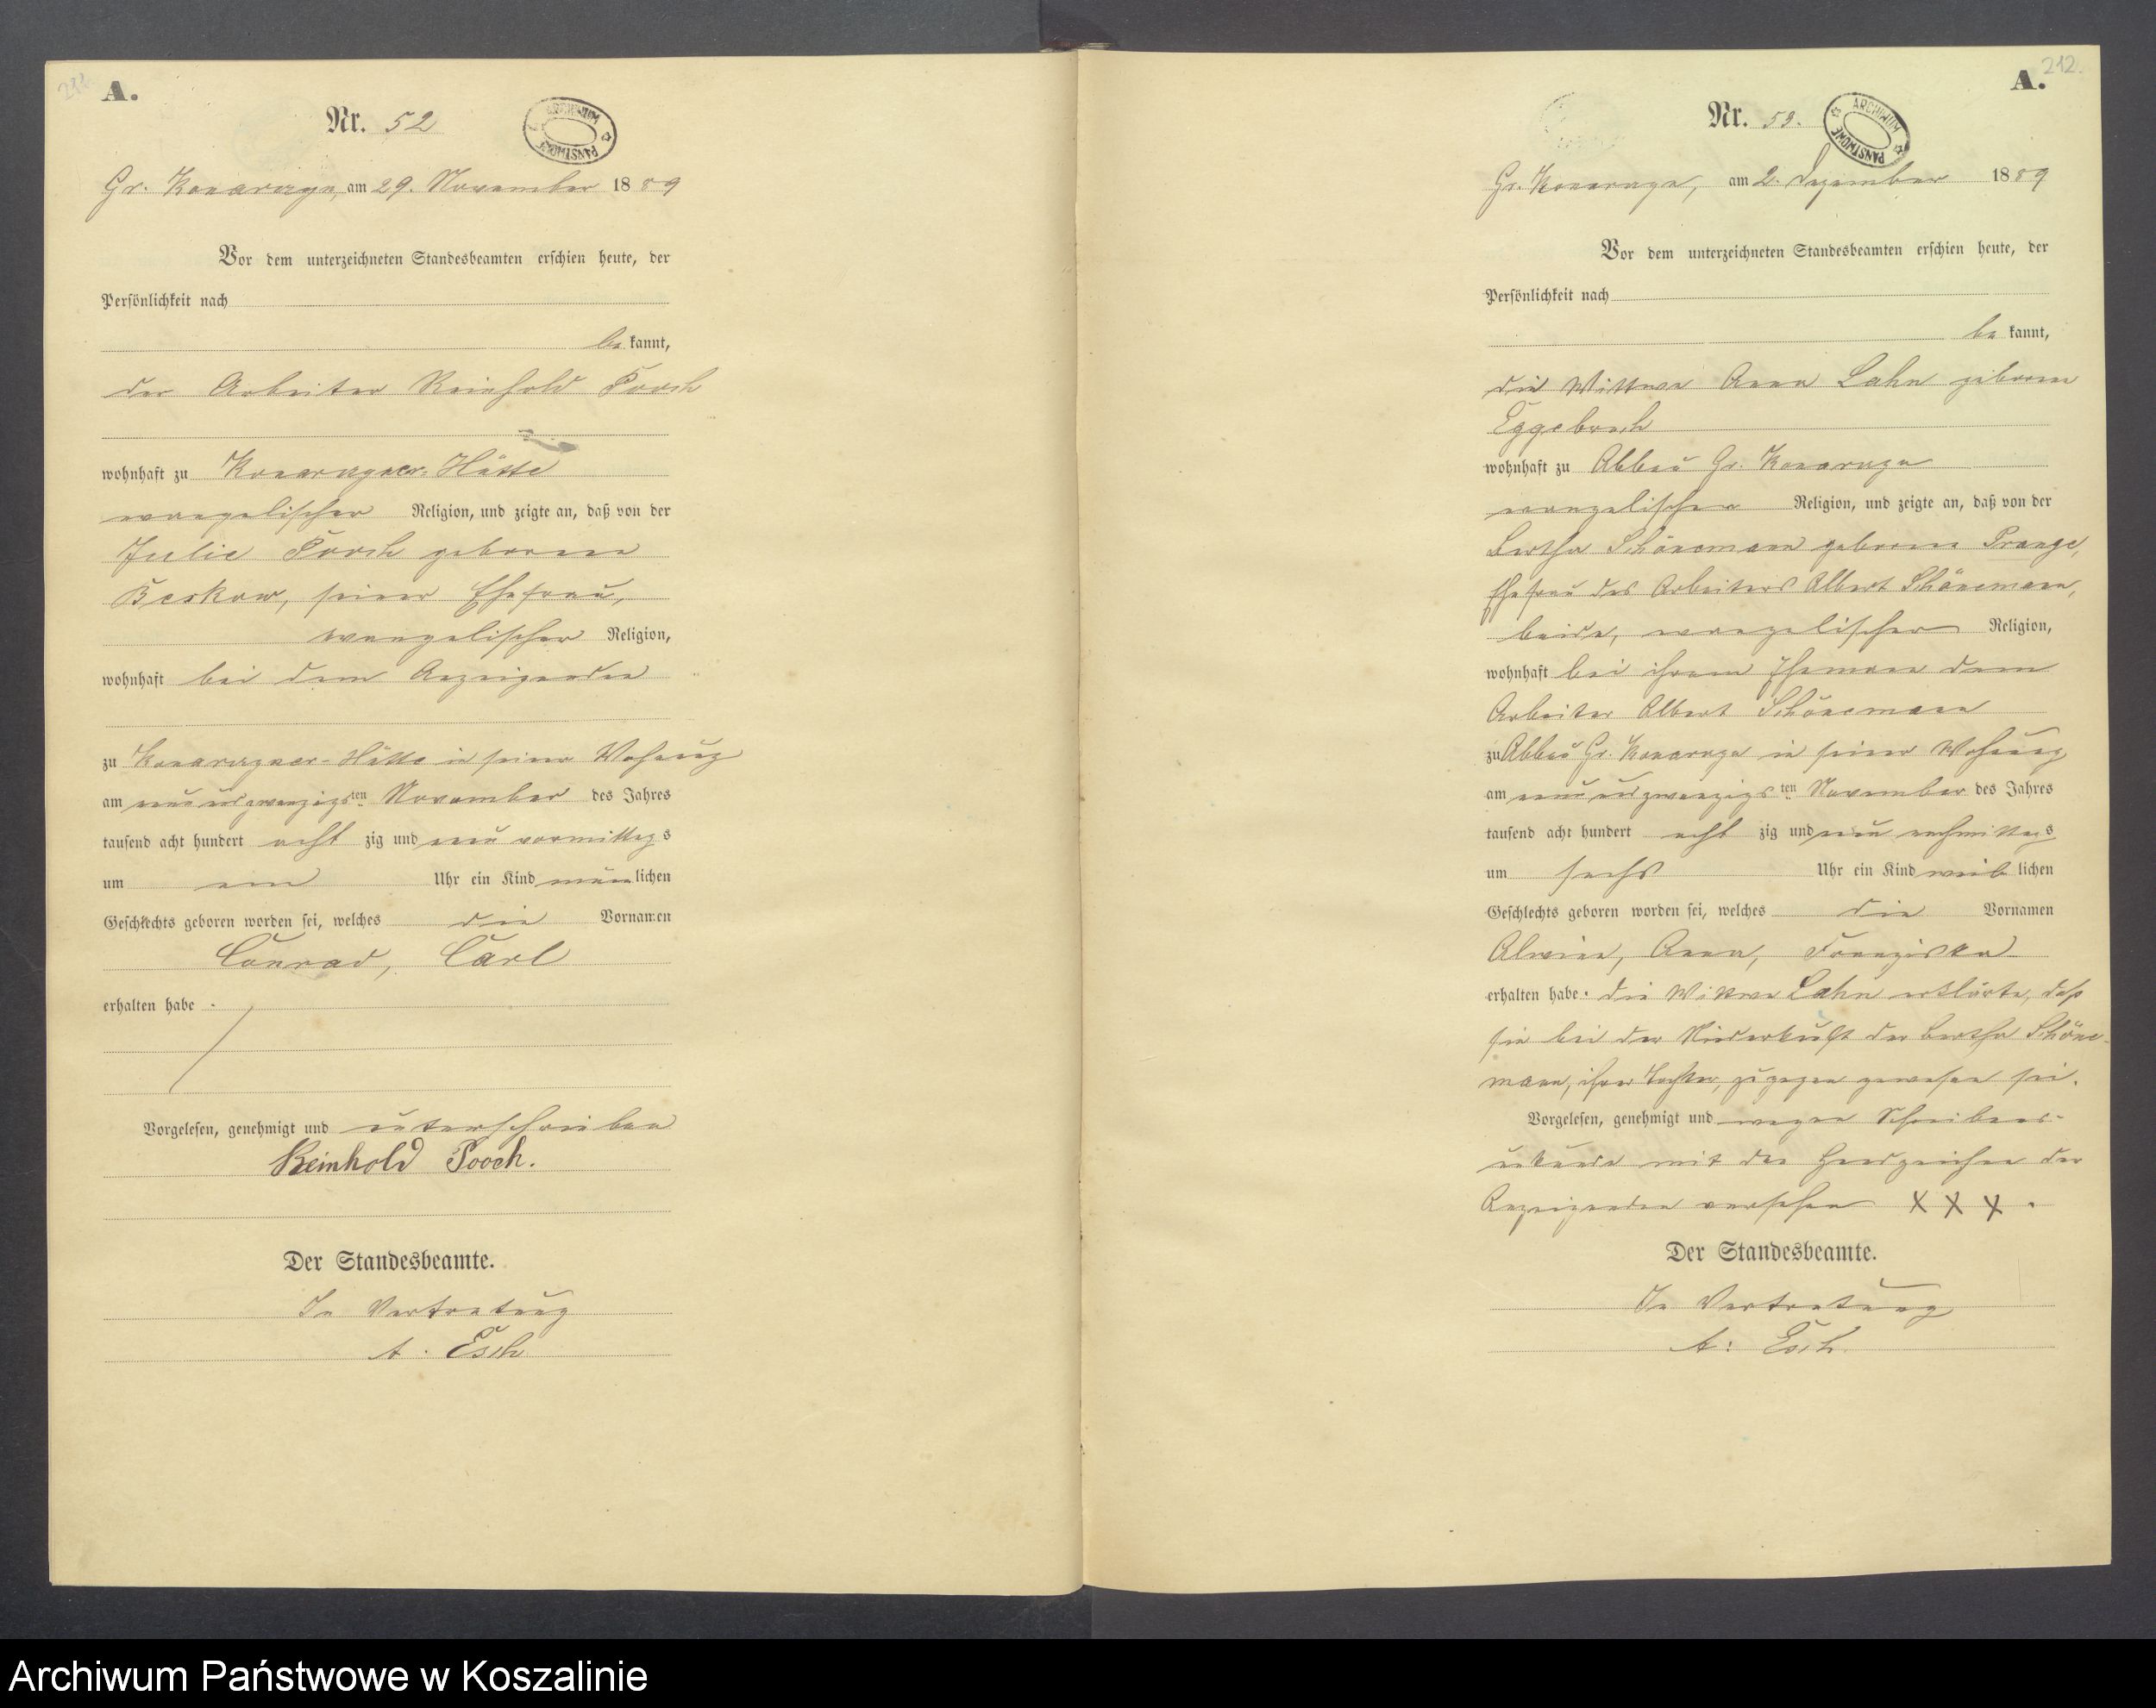 A.
Nr. 52
ARCHIWUM PAŃSTWOWE
Gr. Konarzyn, am 29. November 1889
Vor dem unterzeichneten Standesbeamten erschien heute, der
Persönlichkeit nach
be kannt,
der Arbeiter Reinhold Pooch
wohnhaft zu Konarzyner-Hütte
evangelischer Religion, und zeigte an, daß von der
Julie Pooch geborene
Beskow, seiner Ehefrau,
evangelischer Religion,
wohnhaft bei dem Anzeigenden
zu Konarzyner-Hütte in seiner Wohnung
am neun und zwanzigsten November des Jahres
tausend acht hundert acht zig und neun vormittags
um Uhr ein Kind männlichen
Geschlechts geboren worden sei, welches die Vornamen
Conrad, Carl
erhalten habe.
Vorgelesen, genehmigt und unterschrieben
Reinhold Pooch.
Der Standesbeamte.
In Vertretung
A. Esch
A. 212.
Nr. 53.
ARCHIWUM PAŃSTWOWE
Gr. Konarzyn, am 2. Dezember 1889
Vor dem unterzeichneten Standesbeamten erschien heute, der
Persönlichkeit nach
be kannt,
die Wittwe Anna Lahn geborene
Eggebrech
wohnhaft zu Abbau Gr. Konarzyn
evangelischer Religion, und zeigte an, daß von der
Bertha Schönemann geborene Prange,
Ehefrau des Arbeiters Albert Schönemann,
beide, evangelischer Religion,
wohnhaft bei ihrem Ehemann dem
Arbeiter Albert Schönemann
zu Abbau Gr. Konarzyn in seiner Wohnung
am neun und zwanzigsten November des Jahres
tausend acht hundert acht zig und neun nachmittags
um sechs Uhr ein Kind weib lichen
Geschlechts geboren worden sei, welches die Vornamen
Alwine, Anna, Franziska
erhalten habe. Die Wittwe Lahn erklärte, daß
sie bei der Niederkunft der Bertha Schöne-
mann, ihrer Tochter, zugegen gewesen sei.
Vorgelesen, genehmigt und wegen Schreibens-
unkunde mit den Handzeichen der
Anzeigenden versehen XXX.
Der Standesbeamte.
In Vertretung
A: Esch.
Archiwum Państwowe w Koszalinie